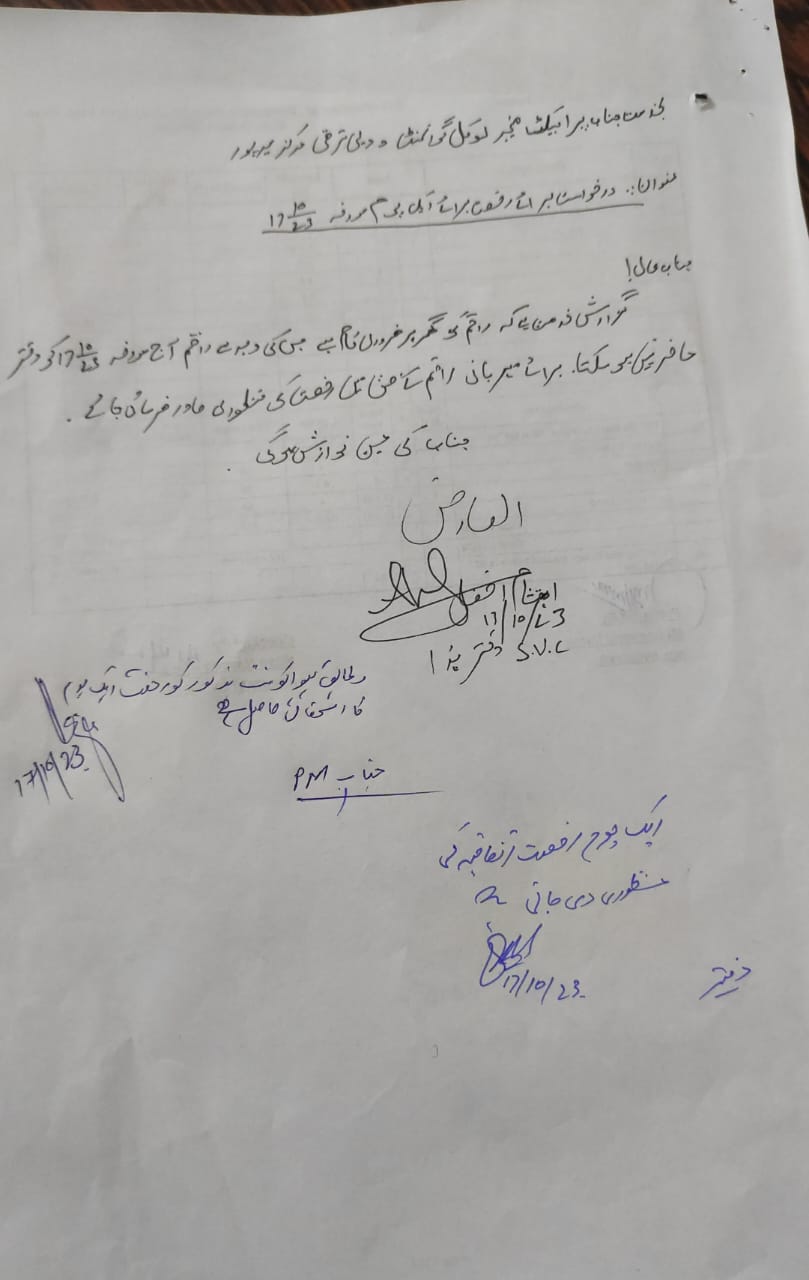 بخدمت جناب پراجیکٹ منیجر لوکل گورنمنٹ و دیہی ترقی مرکز میرپور
عنوان:۔ درخواست برائے رخصت برائے ایک یوم مورخہ 17 10/23
جناب عالی!
گزارش خدمت ہیکہ راقم کو گھر پر ضروری کام ہے جس کی وجہ سے راقم آج مورخہ 17 10/23 کو دفتر
حاضر نہیں ہو سکتا۔ برائے مہربانی راقم کے حق میں رخصت کی منظوری صادر فرمائی جائے۔
جناب کی عین نوازش ہوگی۔
العارض
17/10/23
دفتر ہذا
مطابق لیو اکونٹ مذکور کو رخصت ایک یوم
کا استحقاق حاصل ہے
17/10/23
جناب PM
ایک یوم رخصت اتفاقیہ کی
منظوری دی جاتی ہے
17/10/23
دفتر